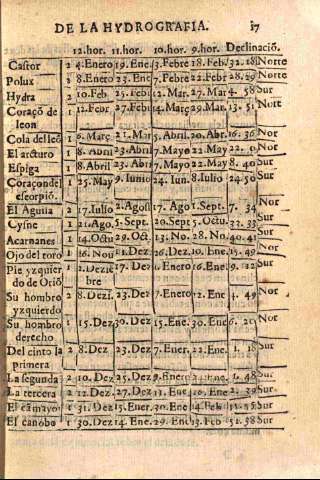 DE LA HYDROGRAFIA. 17
12.hor. 11.hor. 10.hor. 9.hor. Declinació.
Castor 2 4.Enero 19.Ene. 3.Febre 18.Feb. 32.18 Norte
Polux 2 8.Enero 23.Ene. 7.Febre 22.Feb. 28.29 Norte
Hydra 2 10.Feb. 25.Febr 12.Mar. 27.Mar 4. 58 Sur
Coraçõ de 1 12.Febr 27.Febr 14.Març 29.Mar. 13. 51 Nort
leon
Cola del leõ 1 6.Març. 21.Mar 5.Abril. 20.Abr. 16. 36 Nor
El arcturo 1 8.Abril 23.Abril 7.May. 22.May 22. Nor
Espiga 1 8.Abril 23.Abr. 7.Mayo 22.May 8. 40 Sur
Coraçon del 1 25.May 9.Iunio 24.Iun. 8.Iulio 24.50 Sur
escorpiõ.
El Aguila 2 17.Iulio 2.Agost 17.Ago. 1.Sept. 7. 34 Nor
Cysne 1 21.Ago. 5.Sept. 20.Sept 5.Octu. 33 Nor
Acarnanes 1 14.Octu 29.Oct. 13.No. 28.Nov. 40. 41 Sur
Ojo del toro 1 16.Nou 11.Dez 26.Dez. 10.Ene. 15. 49 Nor
Pie yzquier 1 2.Dezie 17.Dez 1.Enero 16.Ene 9. 12 Sur
do de Oriõ bre
Su hombro 2 8.Dezi. 23.Dez. 7.Enero 22.Ene. 4. 49 Nor
yzquierdo
Su hombro 1 15.Dez 30.Dez. 15.Ene. 30.Ene. 6. 20 Nor
derecho
Del cinto la 2 8.Dez. 23.Dez. 7.Ener. 22.Ene. 1. 18 Sur
primera
La segunda 2 10.Dez. 25.Dez. 9.Enero 24.Ene. 1. 48 Sur
La tercera 2 12.Dez. 27.Dez. 11.Ene. 26.Ene. 2. 39 Sur
El cã mayor 1 31.Dez 15.Ener. 30.Ene 14.Feb. 15.55 Sur
El canobo 1 30.Dez 14.Ene. 29.Ene. 13.Feb 51.38 Sur